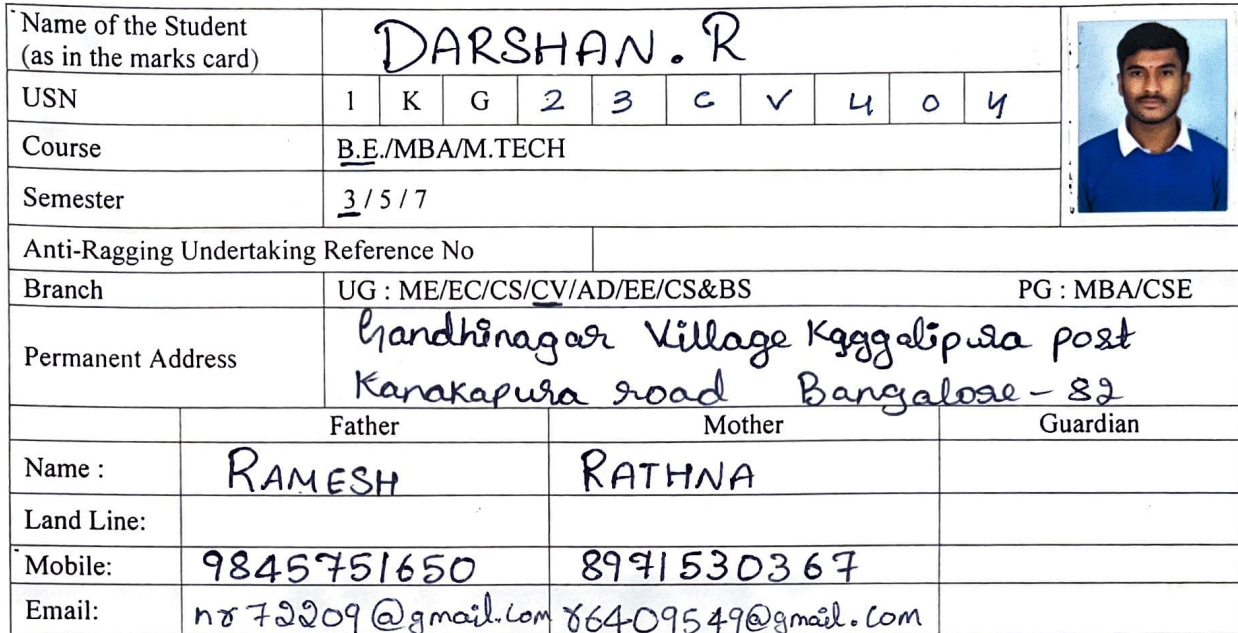 Name of the Student
(as in the marks card)
DARSHAN. R
USN 1 K G 2 3 C V 4 0 4
Course B.E./MBA/M.TECH
Semester 3 / 5 / 7
Anti-Ragging Undertaking Reference No
Branch UG : ME/EC/CS/CV/AD/EE/CS&BS PG : MBA/CSE
Permanent Address
Gandhinagar Village Kaggalipura post
Kanakapura road Bangalore - 82
Father Mother Guardian
Name : RAMESH RATHNA
Land Line:
Mobile: 9845751650 8971530367
Email: nr72209@gmail.com r6409549@gmail.com